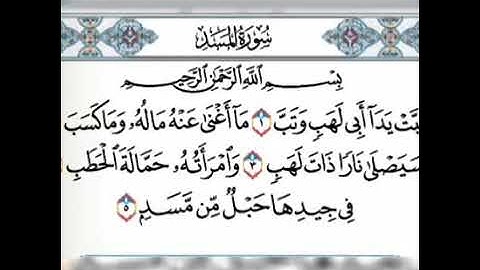 سُورَةُ المَسَدِ
بِسْمِ ٱللَّهِ ٱلرَّحْمَٰنِ ٱلرَّحِيمِ
تَبَّتْ يَدَآ أَبِى لَهَبٍ وَتَبَّ ١ مَآ أَغْنَىٰ عَنْهُ مَالُهُۥ وَمَا كَسَبَ
سَيَصْلَىٰ نَارًا ذَاتَ لَهَبٍ ٣ وَٱمْرَأَتُهُۥ حَمَّالَةَ ٱلْحَطَبِ
فِى جِيدِهَا حَبْلٌ مِّن مَّسَدٍۭ ٥